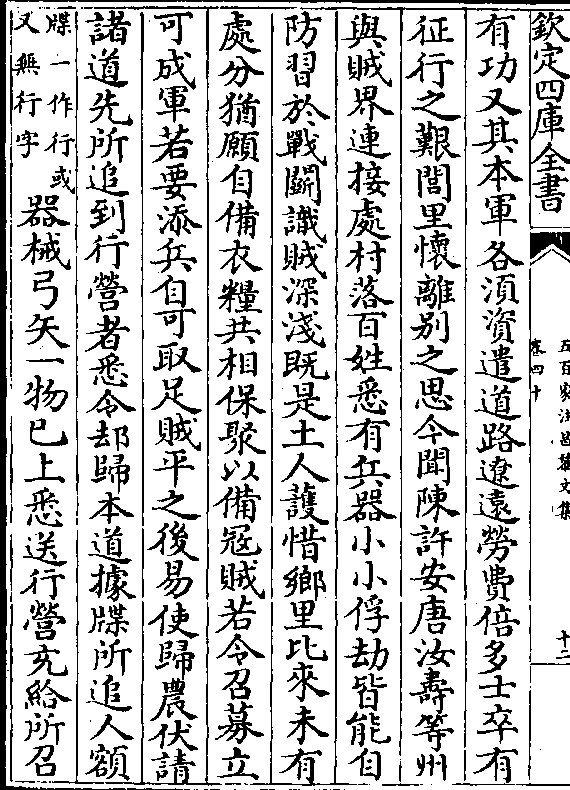 欽定四庫全書
五百家注昌黎文集
卷四十
十二
有功又其本軍各湏資遣道路遼遠勞費倍多士卒有
征行之艱閭里懷離别之思今聞陳許安唐汝夀等州
與賊界連接處村落百姓悉有兵器小小俘劫皆能自
防習於戰鬬識賊深淺既是土人䕶惜鄉里比來未有
處分猶願自備衣糧共相保聚以備宼賊若令召募立
可成軍若要添兵自可取足賊平之後易使歸農伏請
諸道先所追到行營者悉令却歸本道據牒所追人額
牒一作行或
又無行字
器械弓矢一物已上悉送行營充給所召